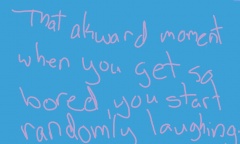 That akward moment
when you get so
bored, you start
randomly laughing.